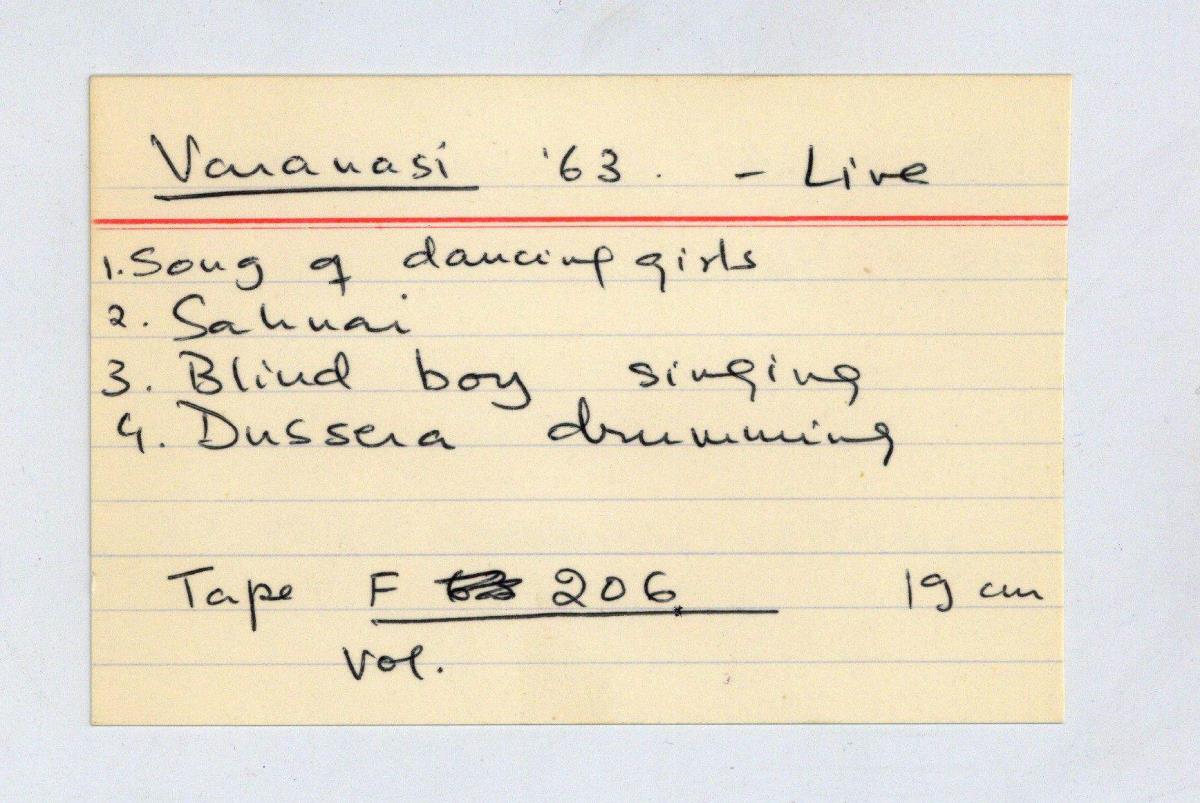 Varanasi '63. - Live
1. Song of dancing girls
2. Sahnai
3. Blind boy singing
4. Dussera drumming
Tape F 206 19 cm
Vol.